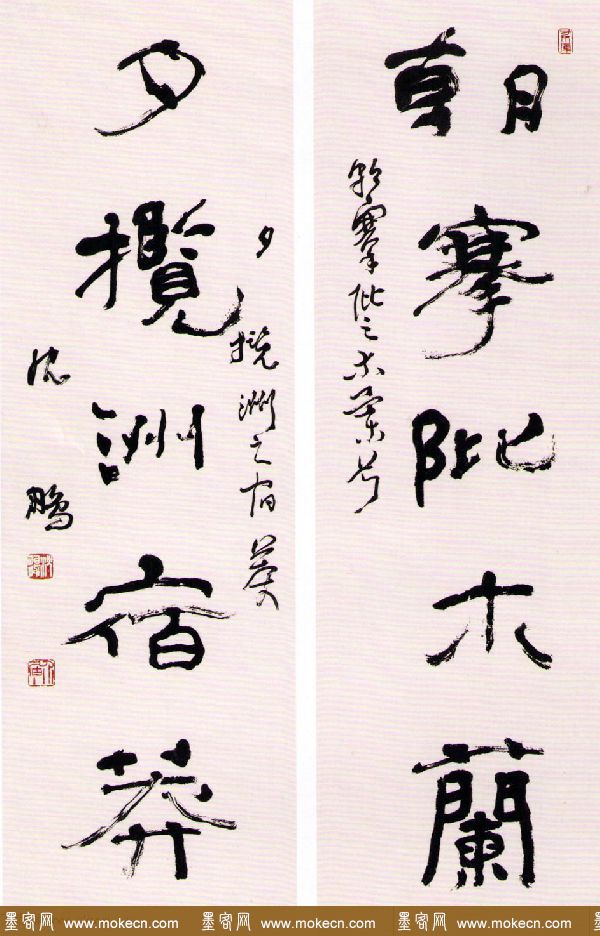 朝搴阰木蘭
朝搴阰之木蘭兮
夕攬洲宿莽
夕揽洲之宿莽
沈鹏
墨客网 www.mokecn.com 墨客网 www.mokecn.com 墨客网 www.